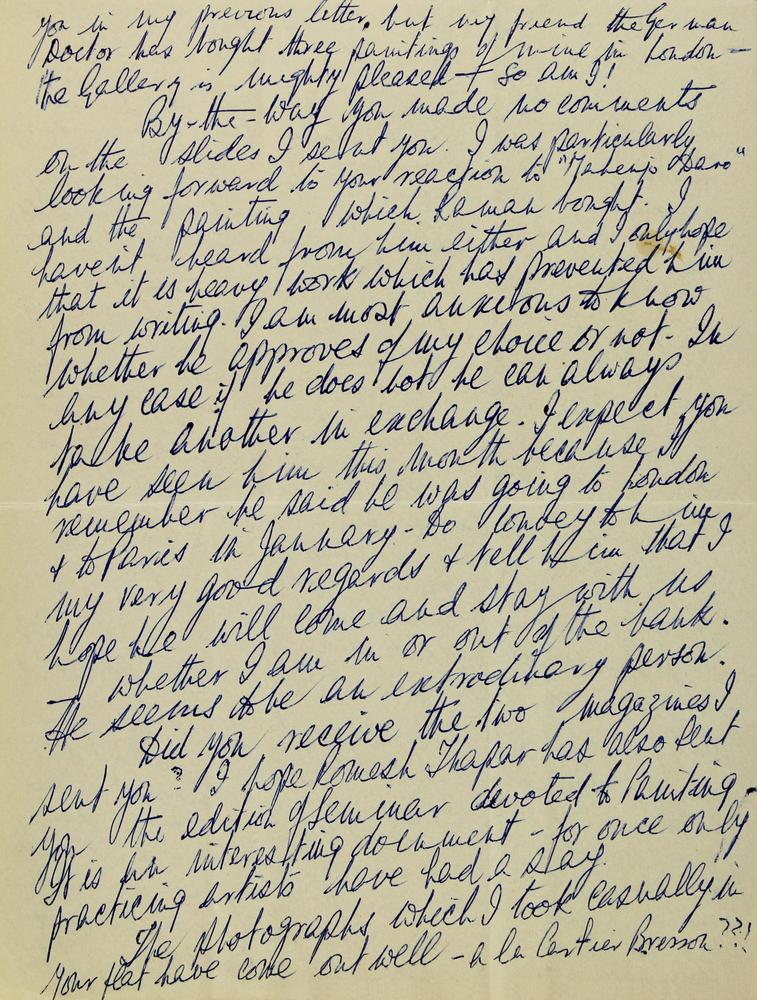 you in my previous letter, but my friend the German
Doctor has bought three paintings of mine in London —
the Gallery is mighty pleased — So am I!
By-the-way you made no comments
on the slides I sent you. I was particularly
looking forward to your reaction to "Mahenjo Daro"
and the painting which Raman bought. I
havent heard from him either and I only hope
that it is heavy work which has prevented him
from writing. I am most anxious to know
whether he approves of my choice or not. In
any case if he does not he can always
take another in exchange. I expect you
have seen him this month because I
remember he said he was going to London
& to Paris in January - Do convey to him
my very good regards & tell him that I
hope he will come and stay with us
— whether I am in or out of the bank.
He seems to be an extrodinary person.
Did you receive the two magazines I
sent you? I hope Romesh Thapar has also sent
you the edition of Seminar devoted to Painting.
It is an interesting document - for once only
practicing artists have had a say.
The photographs which I took casually in
your flat have come out well - a la Cartier Bresson??!